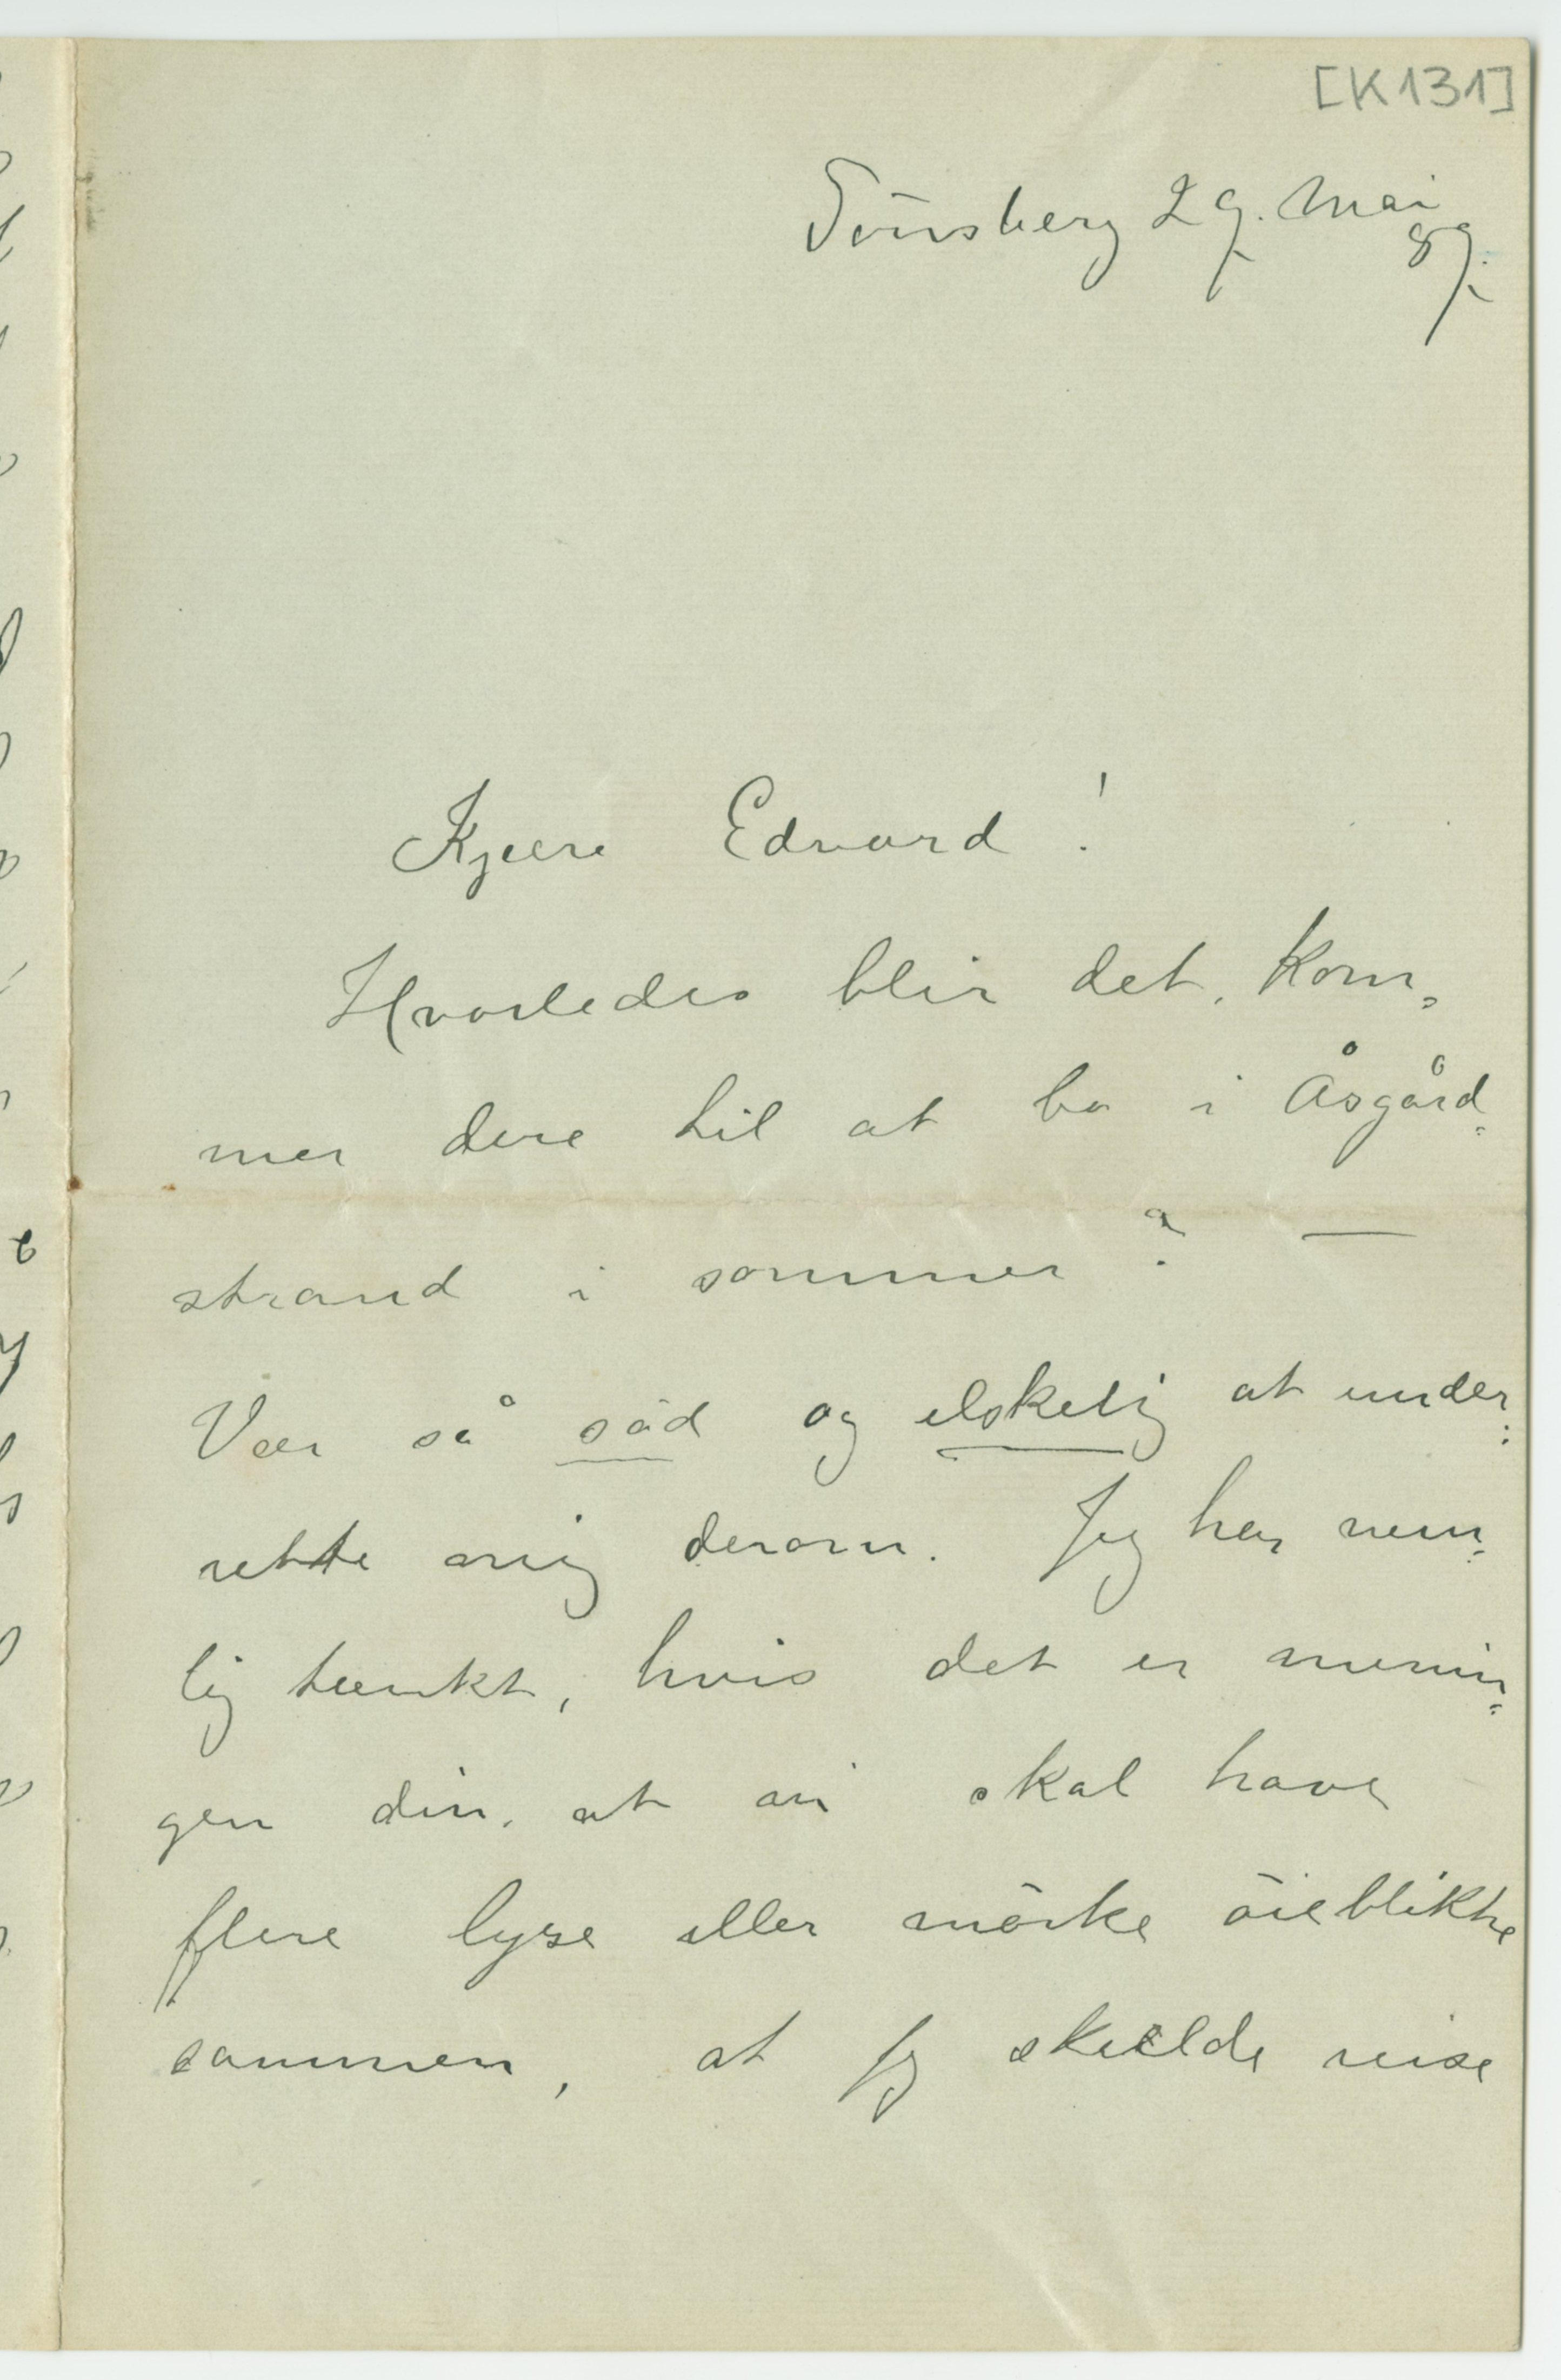 [K131]
Tönsberg 29. Mai
89.
Kjære Edvard!
Hvorledes blir det, kom=
mer dere til at bo i Åsgård=
strand i sommer? —
Vær så söd og elskelig at under=
rette mig derom. Jeg har nem=
lig tænkt, hvis det er menin=
gen din, at vi skal have
flere lyse eller mörke öieblikke
sammen, at jeg skulde reise